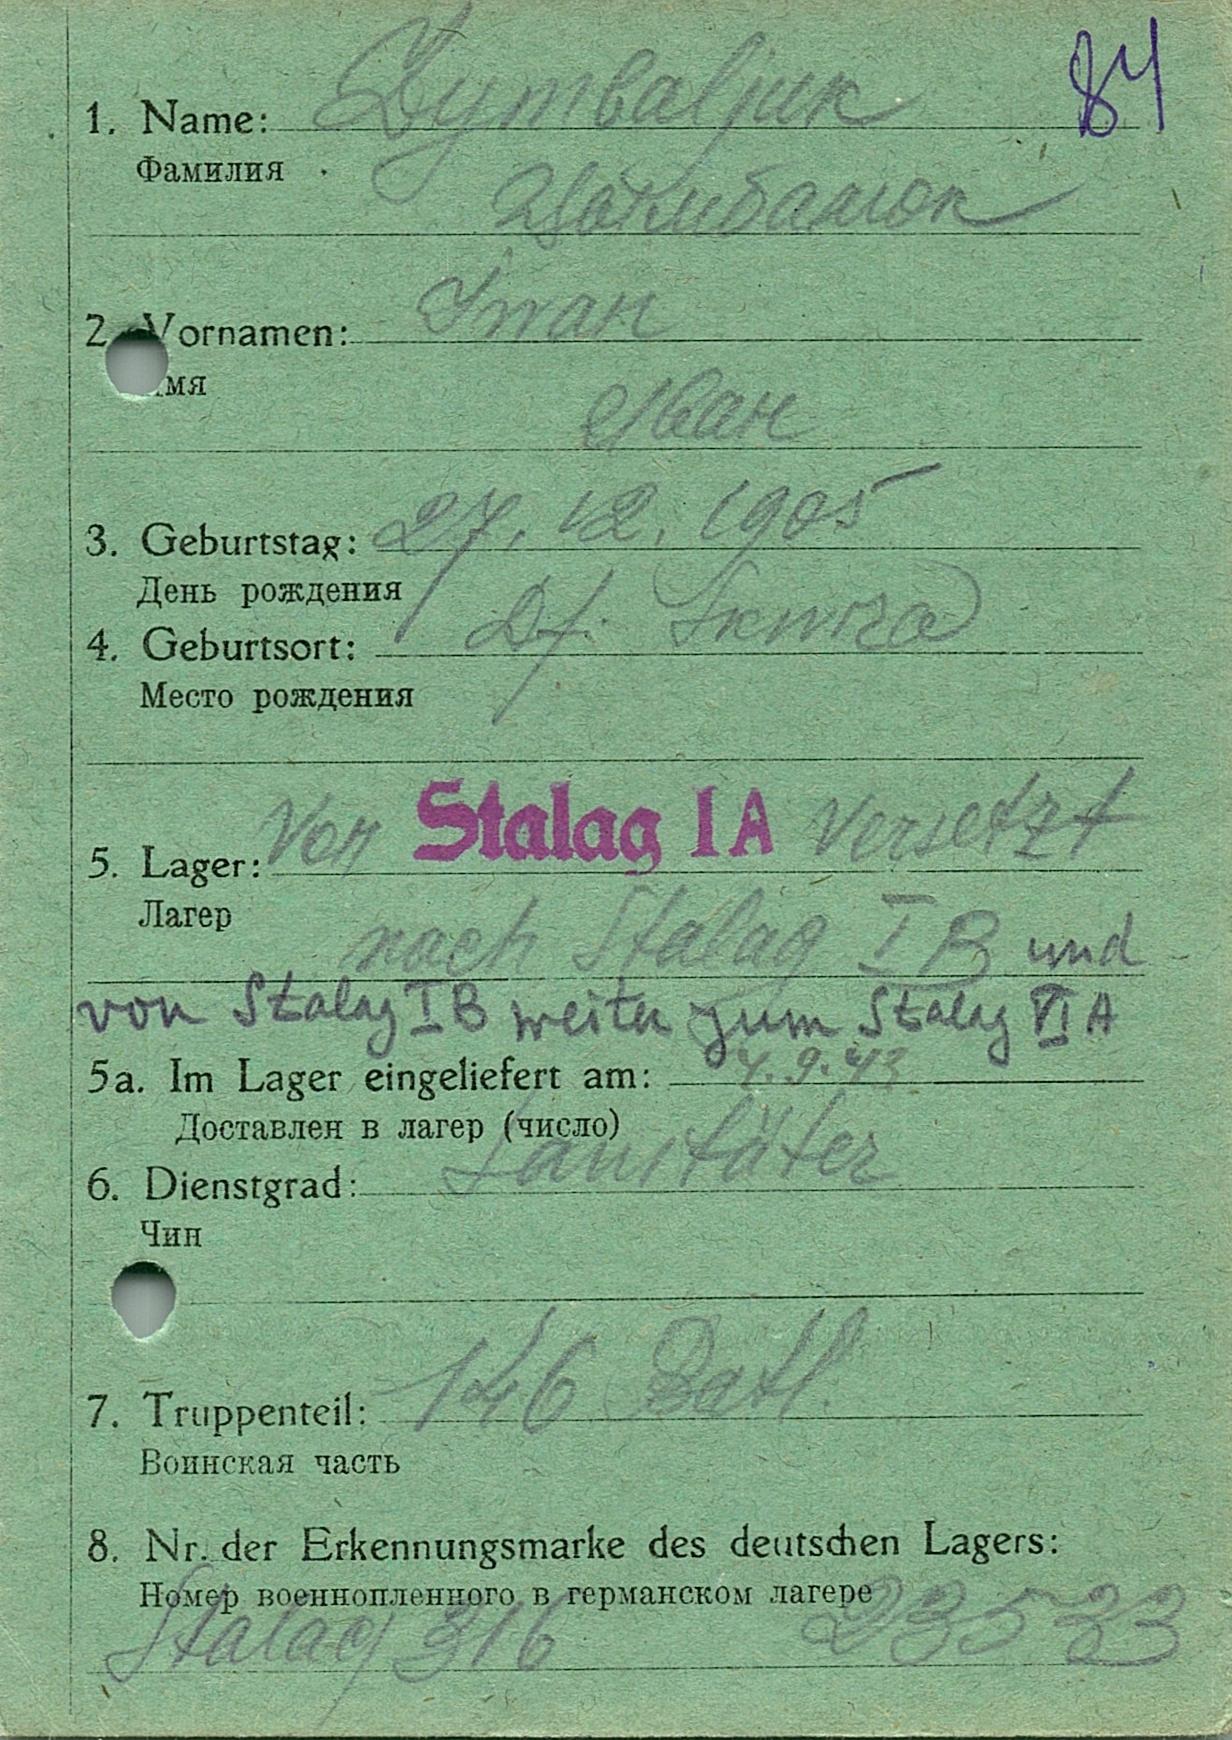 84
1. Name: Zymbaljuk
Фамилия
2. Vornamen: Iwan
мя
Иван
3. Geburtstag: 27.12.1905
День рождения
4. Geburtsort: Df. Skwira
Место рождения
5. Lager: Von Stalag IA versetzt
Лагер
nach Stalag IB und
von Stalag IB weiter zum Stalag VI A
5a. Im Lager eingeliefert am: 4.9.43
Доставлен в лагер (число)
6. Dienstgrad: Sanitäter
Чин
7. Truppenteil: 146 Batl.
Воинская часть
8. Nr. der Erkennungsmarke des deutschen Lagers:
Номер военнопленного в германском лагере
Stalag 316 23533